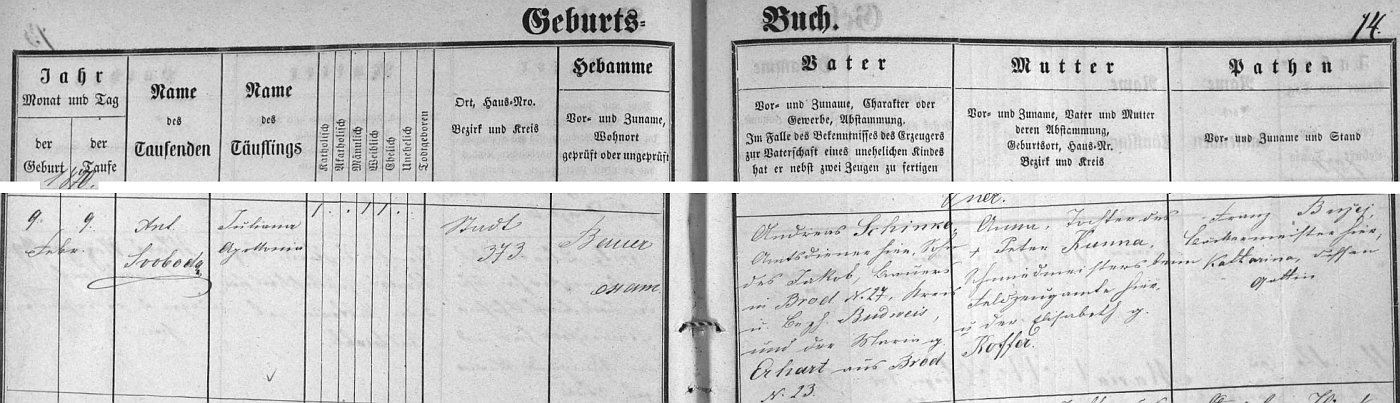 Geburts-
Buch.
14.
Jahr
Monat und Tag
der
Geburt
der
Taufe
Name
des
Taufenden
Name
des
Täuflings
Katholisch
Akatholisch
Männlich
Weiblich
Ehelich
Unehelich
Todtgeboren
Ort, Haus-Nro.
Bezirk und Kreis
Hebamme
Vor- und Zuname,
Wohnort
geprüft oder ungeprüft
Vater
Vor- und Zuname, Charakter oder
Gewerbe, Abstammung.
Im Falle des Bekenntnisses des Erzeugers
zur Vaterschaft eines unehelichen Kindes
hat er nebst zwei Zeugen zu fertigen
Mutter
Vor- und Zuname, Vater und Mutter
deren Abstammung,
Geburtsort, Haus-Nr.
Bezirk und Kreis
Pathen
Vor- und Zuname und Stand
9.
Febr.
9.
Ant.
Svoboda
Juliana
Apollonia
1 . . 1 1 .
Stadt
373.
Bauer
exam.
Andreas Schinko,
Amtsdiener hier, Sohn
des Jakob, Bauers
in Brod N. 27, Kreis
u. Bezh. Budweis,
und der Maria g.
Erhart aus Brod
N. 23.
Anna, Tochter des
+ Peter Kunna,
Schmiedmeisters beim
Feldzeugamte hier,
u der Elisabeth g.
Koffer.
Franz
Bäckermeister hier,
Katharina, dessen
Gattin